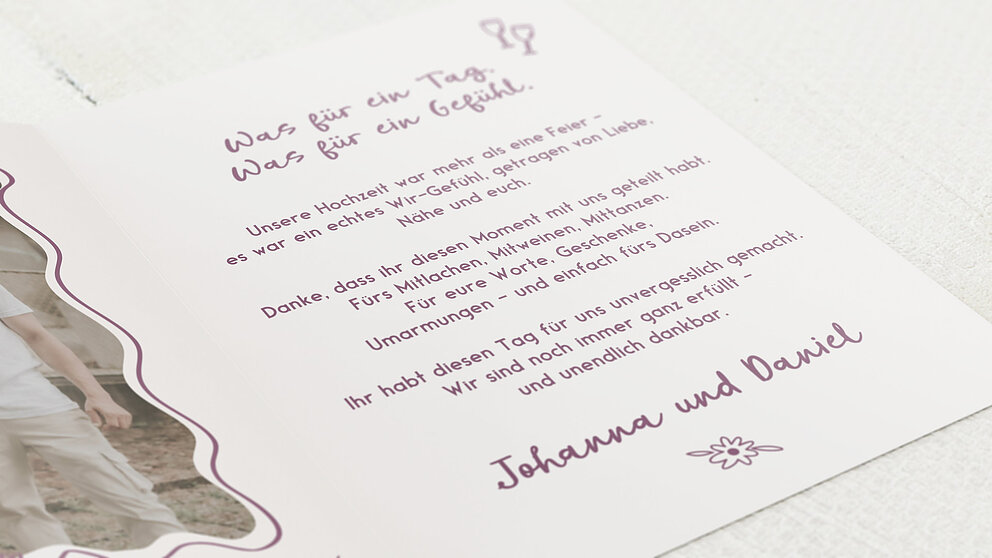 Was für ein Tag.
Was für ein Gefühl.
Unsere Hochzeit war mehr als eine Feier –
es war ein echtes Wir-Gefühl, getragen von Liebe,
Nähe und euch.
Danke, dass ihr diesen Moment mit uns geteilt habt.
Fürs Mitlachen, Mitweinen, Mittanzen.
Für eure Worte, Geschenke,
Umarmungen – und einfach fürs Dasein.
Ihr habt diesen Tag für uns unvergesslich gemacht.
Wir sind noch immer ganz erfüllt –
und unendlich dankbar.
Johanna und Daniel